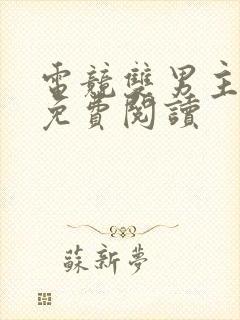 電競雙男主
免費閱讀
蘇新夢